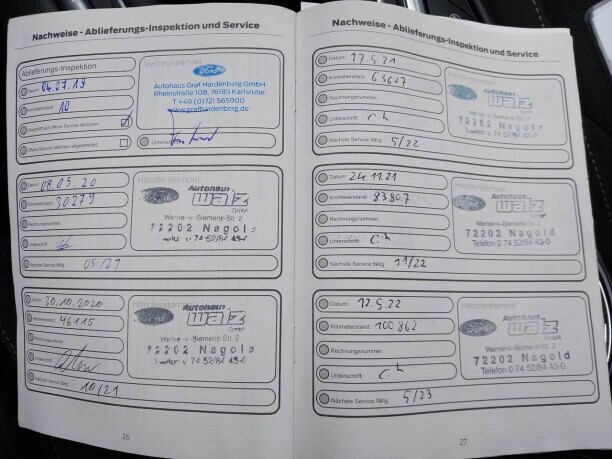 Nachweise - Ablieferungs-Inspektion und Service
Ablieferungs-Inspektion
Datum 04.07.19
Kilometerstand 10
Vertragspartner
Ford
Autohaus Graf Hardenberg GmbH
Rheinstraße 108, 76185 Karlsruhe
T +49 (0)721 565900
www.grafhardenberg.de
Unterschrift
Datum 08.05.20
Kilometerstand 30279
Rechnungsnummer
Unterschrift
Nächste Service fällig 05/21
Händlerstempel
Ford
Autohaus
Walz
GmbH
Werner-v.-Siemens-Str. 2
72202 Nagold
Telefon 0 74 52/84 43-0
Datum 30.10.2020
Kilometerstand 46115
Rechnungsnummer
Unterschrift
Nächste Service fällig 10/21
Händlerstempel
Autohaus
Walz
GmbH
Werner-v.-Siemens-Str. 2
72202 Nagold
Telefon 0 74 52/84 43-0
26
Nachweise - Ablieferungs-Inspektion und Service
Datum: 17.5.21
Kilometerstand 63627
Rechnungsnummer
Unterschrift
Nächste Service fällig 5/22
Autohaus
Walz
Werner-v.-Siemens-Str. 2
72202 Nagold
Datum: 24.11.21
Kilometerstand: 83807
Rechnungsnummer
Unterschrift:
Nächste Service fällig 11/22
Ford
Autohaus
Walz
GmbH
Werner-v.-Siemens-Str. 2
72202 Nagold
Telefon 0 74 52/84 43-0
Datum: 12.5.22
Kilometerstand: 100862
Rechnungsnummer:
Unterschrift:
Nächste Service fällig: 5/23
Händlerstempel
Ford
Autohaus
Walz
GmbH
Werner-v.-Siemens-Str. 2
72202 Nagold
Telefon 0 74 52/84 43-0
27